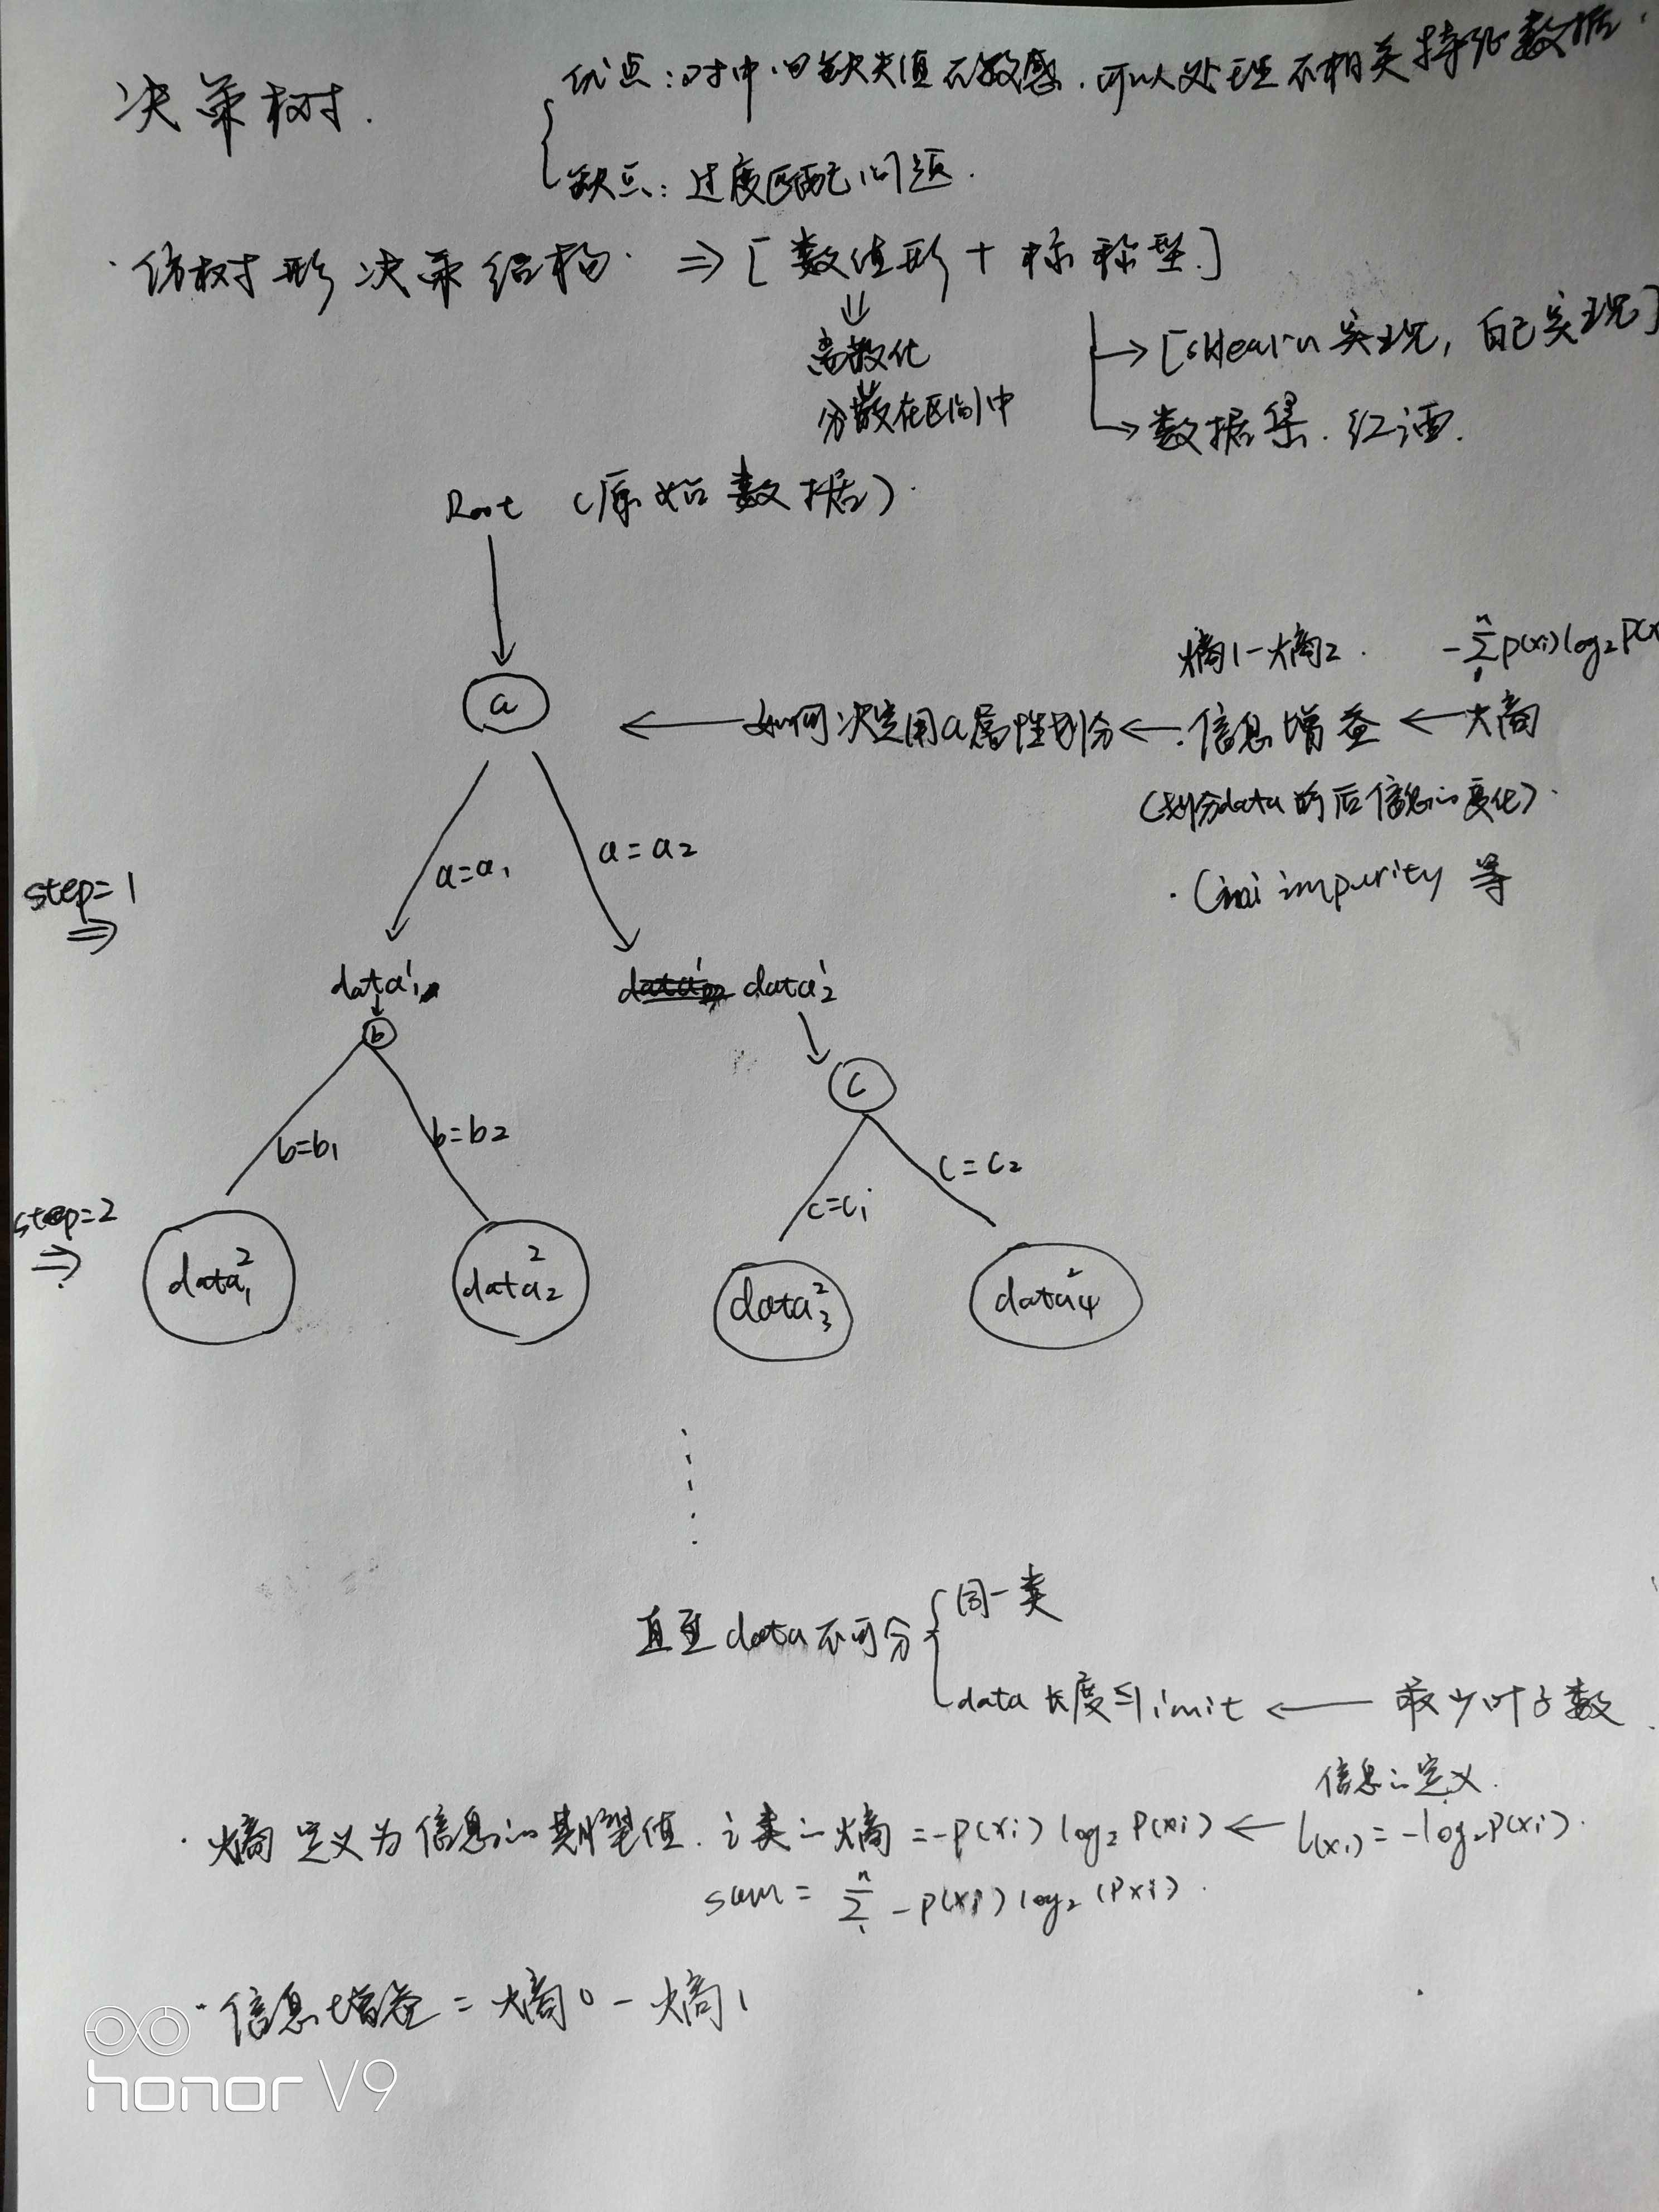 决策树.
优点:对中间缺失值不敏感.可以处理不相关特征数据.
缺点:过度匹配问题.
·仿树形决策结构. ⇒ [数值形 + 标称型.]
⇓
离散化
分散在区间中
→ [sklearn实现, 自己实现]
→ 数据集. 红酒.
Root (原始数据).
熵1-熵2. -∑ⁿ₁ p(xi) log₂ P(x
a ← 如何决定用a属性划分 ← 信息增益 ← 熵
(划分data前后信息的变化).
· Gini impurity 等
a=a₁ a=a₂
step=1
⇒
data¹₁ data¹₂
b
c
b=b₁ b=b₂ c=c₁ c=c₂
step=2
⇒
data²₁ data²₂ data²₃ data²₄
直至data不可分
同一类
data长度≤limit ← 最少叶子数
信息的定义.
·熵 定义为信息的期望值. 之类的熵 = -P(xi) log₂ P(xi) ← l(xi) = -log₂P(xi).
sum = ∑ⁿ₁ -P(xi) log₂ (Pxi).
·信息增益 = 熵0 - 熵1
honor V9